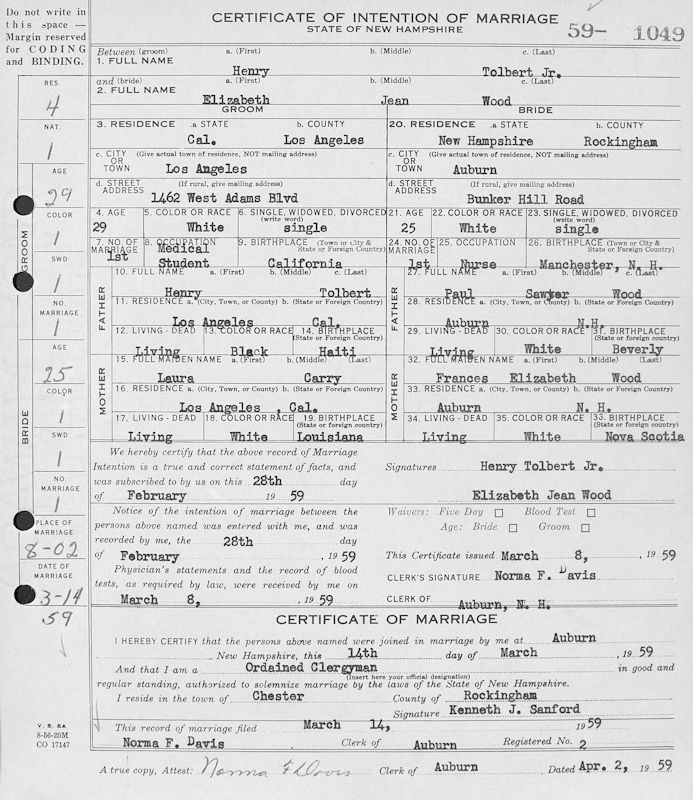 Do not write in
this space —
Margin reserved
for CODING
and BINDING.
CERTIFICATE OF INTENTION OF MARRIAGE
STATE OF NEW HAMPSHIRE
59- 1049
Between (groom) a. (First) b. (Middle) c. (Last)
1. FULL NAME Henry Tolbert Jr.
and (bride) a. (First) b. (Middle) c. (Last)
2. FULL NAME Elizabeth Jean Wood
GROOM BRIDE
3. RESIDENCE .a STATE b. COUNTY 20. RESIDENCE .a STATE b. COUNTY
Cal. Los Angeles New Hampshire Rockingham
c. CITY OR TOWN (Give actual town of residence, NOT mailing address) c. CITY OR TOWN (Give actual town of residence, NOT mailing address)
Los Angeles Auburn
d. STREET ADDRESS (If rural, give mailing address) d. STREET ADDRESS (If rural, give mailing address)
1462 West Adams Blvd Bunker Hill Road
4. AGE 5. COLOR OR RACE 6. SINGLE, WIDOWED, DIVORCED (write word) 21. AGE 22. COLOR OR RACE 23. SINGLE, WIDOWED, DIVORCED (write word)
29 White single 25 White single
7. NO. OF MARRIAGE 8. OCCUPATION 9. BIRTHPLACE (Town or City & State or Foreign Country) 24. NO. OF MARRIAGE 25. OCCUPATION 26. BIRTHPLACE (Town or City & State or Foreign Country)
1st Medical Student California 1st Nurse Manchester, N. H.
FATHER
10. FULL NAME a. (First) b. (Middle) c. (Last) 27. FULL NAME a. (First) b. (Middle) c. (Last)
Henry Tolbert Paul Sawyer Wood
11. RESIDENCE a. (City, Town, or County) b. (State or Foreign Country) 28. RESIDENCE a. (City, Town, or County) b. (State or Foreign Country)
Los Angeles Cal. Auburn N.H.
12. LIVING - DEAD 13. COLOR OR RACE 14. BIRTHPLACE (State or Foreign Country) 29. LIVING - DEAD 30. COLOR OR RACE 31. BIRTHPLACE (State or Foreign Country)
Living Black Haiti Living White Beverly
MOTHER
15. FULL MAIDEN NAME a. (First) b. (Middle) (Last) 32. FULL MAIDEN NAME a. (First) b. (Middle) (Last)
Laura Carry Frances Elizabeth Wood
16. RESIDENCE a. (City, Town, or County) b. (State or Foreign Country) 33. RESIDENCE a. (City, Town, or County) b. (State or Foreign Country)
Los Angeles , Cal. Auburn N. H.
17. LIVING - DEAD 18. COLOR OR RACE 19. BIRTHPLACE (State or Foreign Country) 34. LIVING - DEAD 35. COLOR OR RACE 33. BIRTHPLACE (State or Foreign Country)
Living White Louisiana Living White Nova Scotia
We hereby certify that the above record of Marriage
Intention is a true and correct statement of facts, and
was subscribed to by us on this 28th day
of February 19 59
Signatures Henry Tolbert Jr.
Elizabeth Jean Wood
Notice of the intention of marriage between the
persons above named was entered with me, and was
recorded by me, the 28th day
of February , 19 59
Waivers: Five Day Blood Test
Age: Bride Groom
Physician's statements and the record of blood
tests, as required by law, were received by me on
March 8, , 19 59
This Certificate issued March 8, , 19 59
CLERK'S SIGNATURE Norma F. Davis
CLERK OF Auburn, N. H.
CERTIFICATE OF MARRIAGE
I HEREBY CERTIFY that the persons above named were joined in marriage by me at Auburn
, New Hampshire, this 14th day of March , 19 59
And that I am a Ordained Clergyman in good and
(Insert here your official designation)
regular standing, authorized to solemnize marriage by the laws of the State of New Hampshire.
I reside in the town of Chester County of Rockingham
Signature Kenneth J. Sanford
This record of marriage filed March 14, 19 59
Norma F. Davis Clerk of Auburn Registered No. 2
A true copy, Attest: Norma F Davis Clerk of Auburn Dated Apr. 2, , 19 59
RES.
4
NAT.
1
GROOM
AGE
29
COLOR
1
SWD
1
NO. MARRIAGE
1
BRIDE
AGE
25
COLOR
1
SWD
1
NO. MARRIAGE
1
PLACE OF MARRIAGE
8-02
DATE OF MARRIAGE
3-14
59
V. S. 8A
8-56-20M
CO 17147